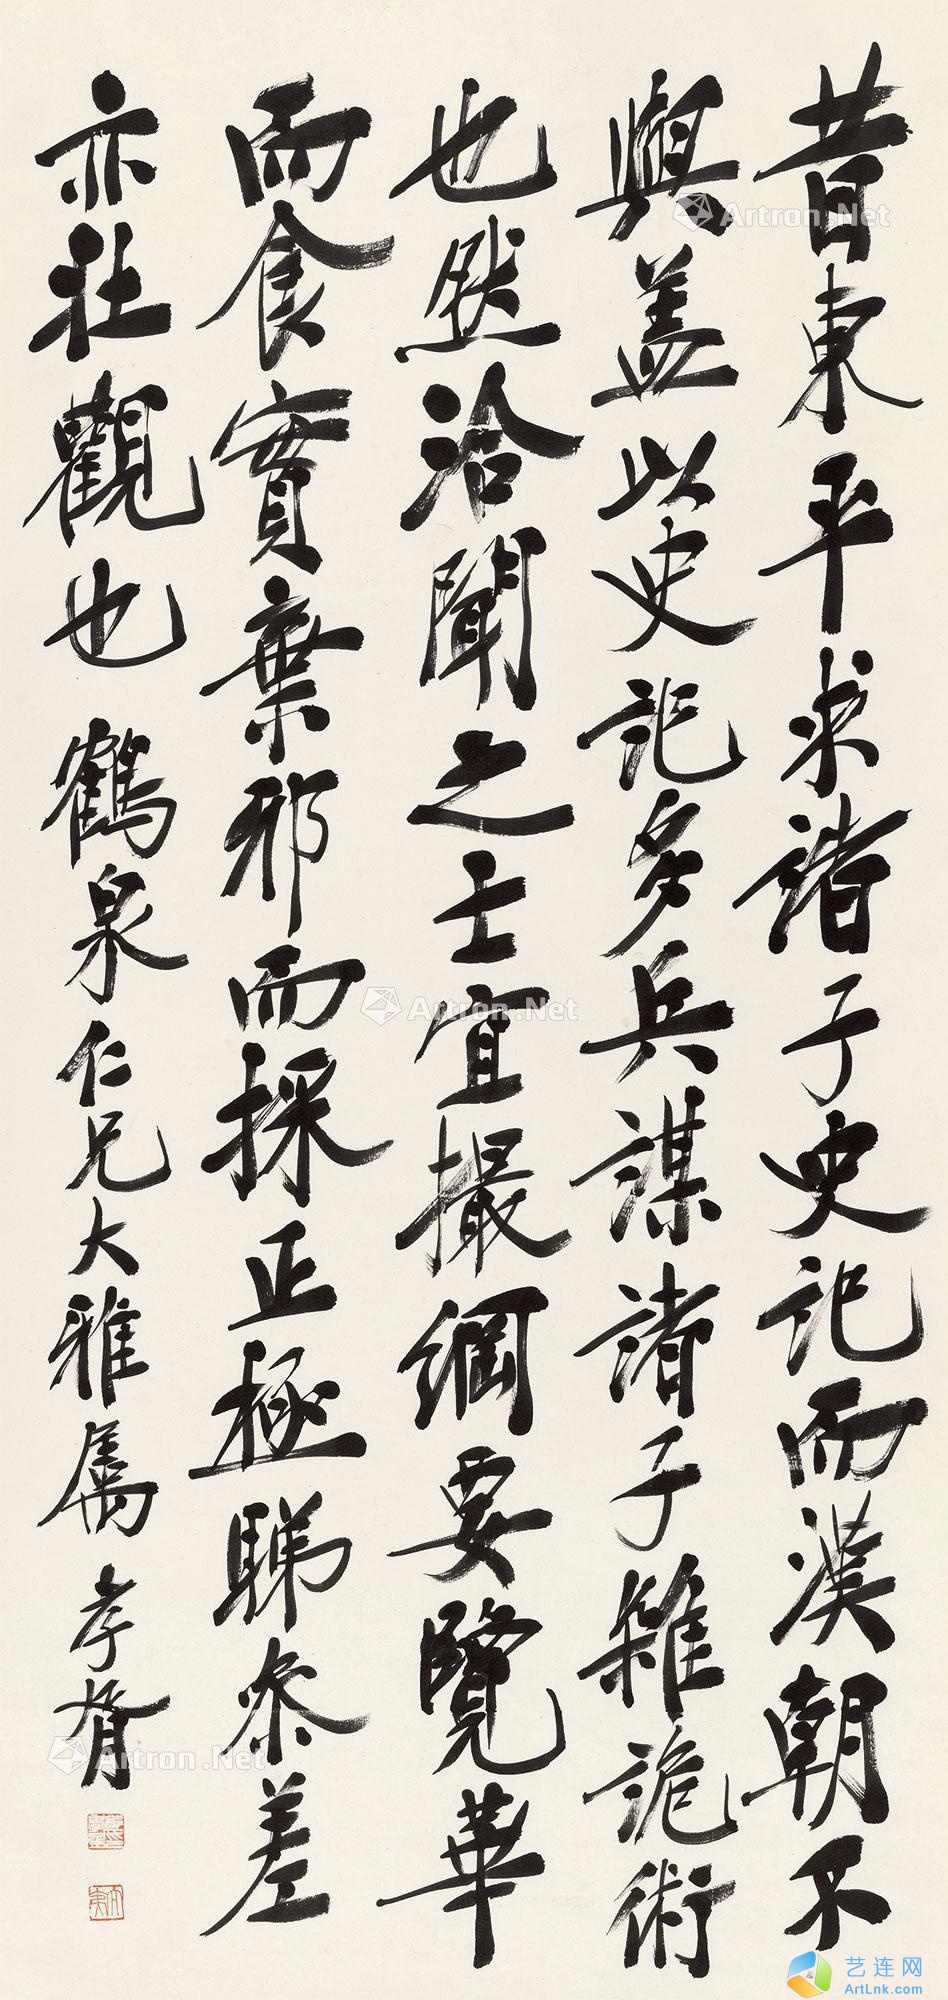 昔東平求諸子史記而漢朝不
與盖以史記多兵謀諸子雜詭術
也然洽聞之士宜撮綱要覽華
而食實棄邪而採正極睇叅差
亦壯觀也 鶴泉仁兄大雅屬 孝胥
Artron.Net
Artron.Net
Artron.Net
Artron.Net
艺连网
ArtLnk.com